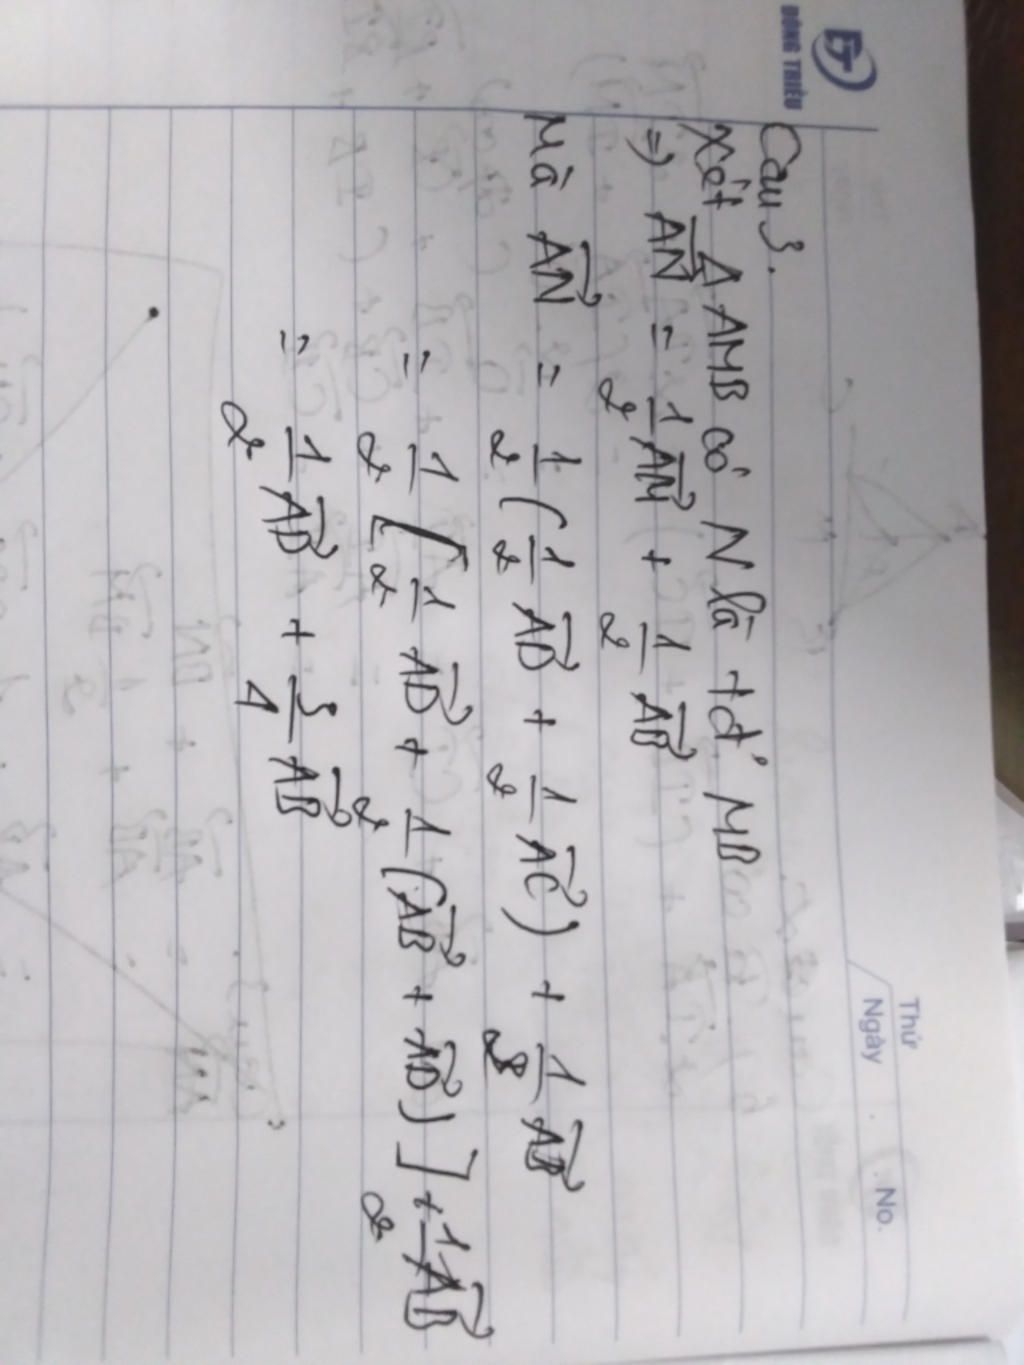 ĐÔNG TRIỀU
Thứ
Ngày . No.
Câu 3.
Xét Δ AMB có N là tđ' MB
=> \overrightarrow{AN} = \frac{1}{2} \overrightarrow{AM} + \frac{1}{2} \overrightarrow{AB}
Mà \overrightarrow{AN} = \frac{1}{2} (\frac{1}{2} \overrightarrow{AD} + \frac{1}{2} \overrightarrow{AC}) + \frac{1}{2} \overrightarrow{AB}
= \frac{1}{2} [\frac{1}{2} \overrightarrow{AD} + \frac{1}{2} (\overrightarrow{AB} + \overrightarrow{AD})] + \frac{1}{2} \overrightarrow{AB}
= \frac{1}{2} \overrightarrow{AD} + \frac{3}{4} \overrightarrow{AB}